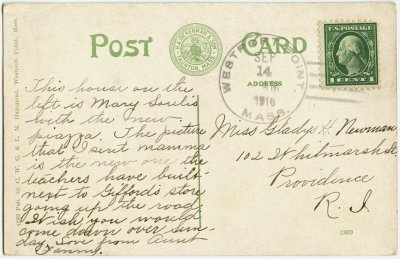 POST CARD
ADDRESS
WESTPORT POINT
SEP
14
1916
MASS.
U.S. POSTAGE
1 CENT 1
This house on the
left is Mary Soule's
with the new
piazza. The picture
that I sent mamma
is the new one the
teachers have built
next to Gifford's store
going up the road
Wish you would
come down over Sun-
day. Love from Aunt
Fanny.
Miss Gladys H. Newman
102 Whitmarsh St.
Providence
R. I
13670